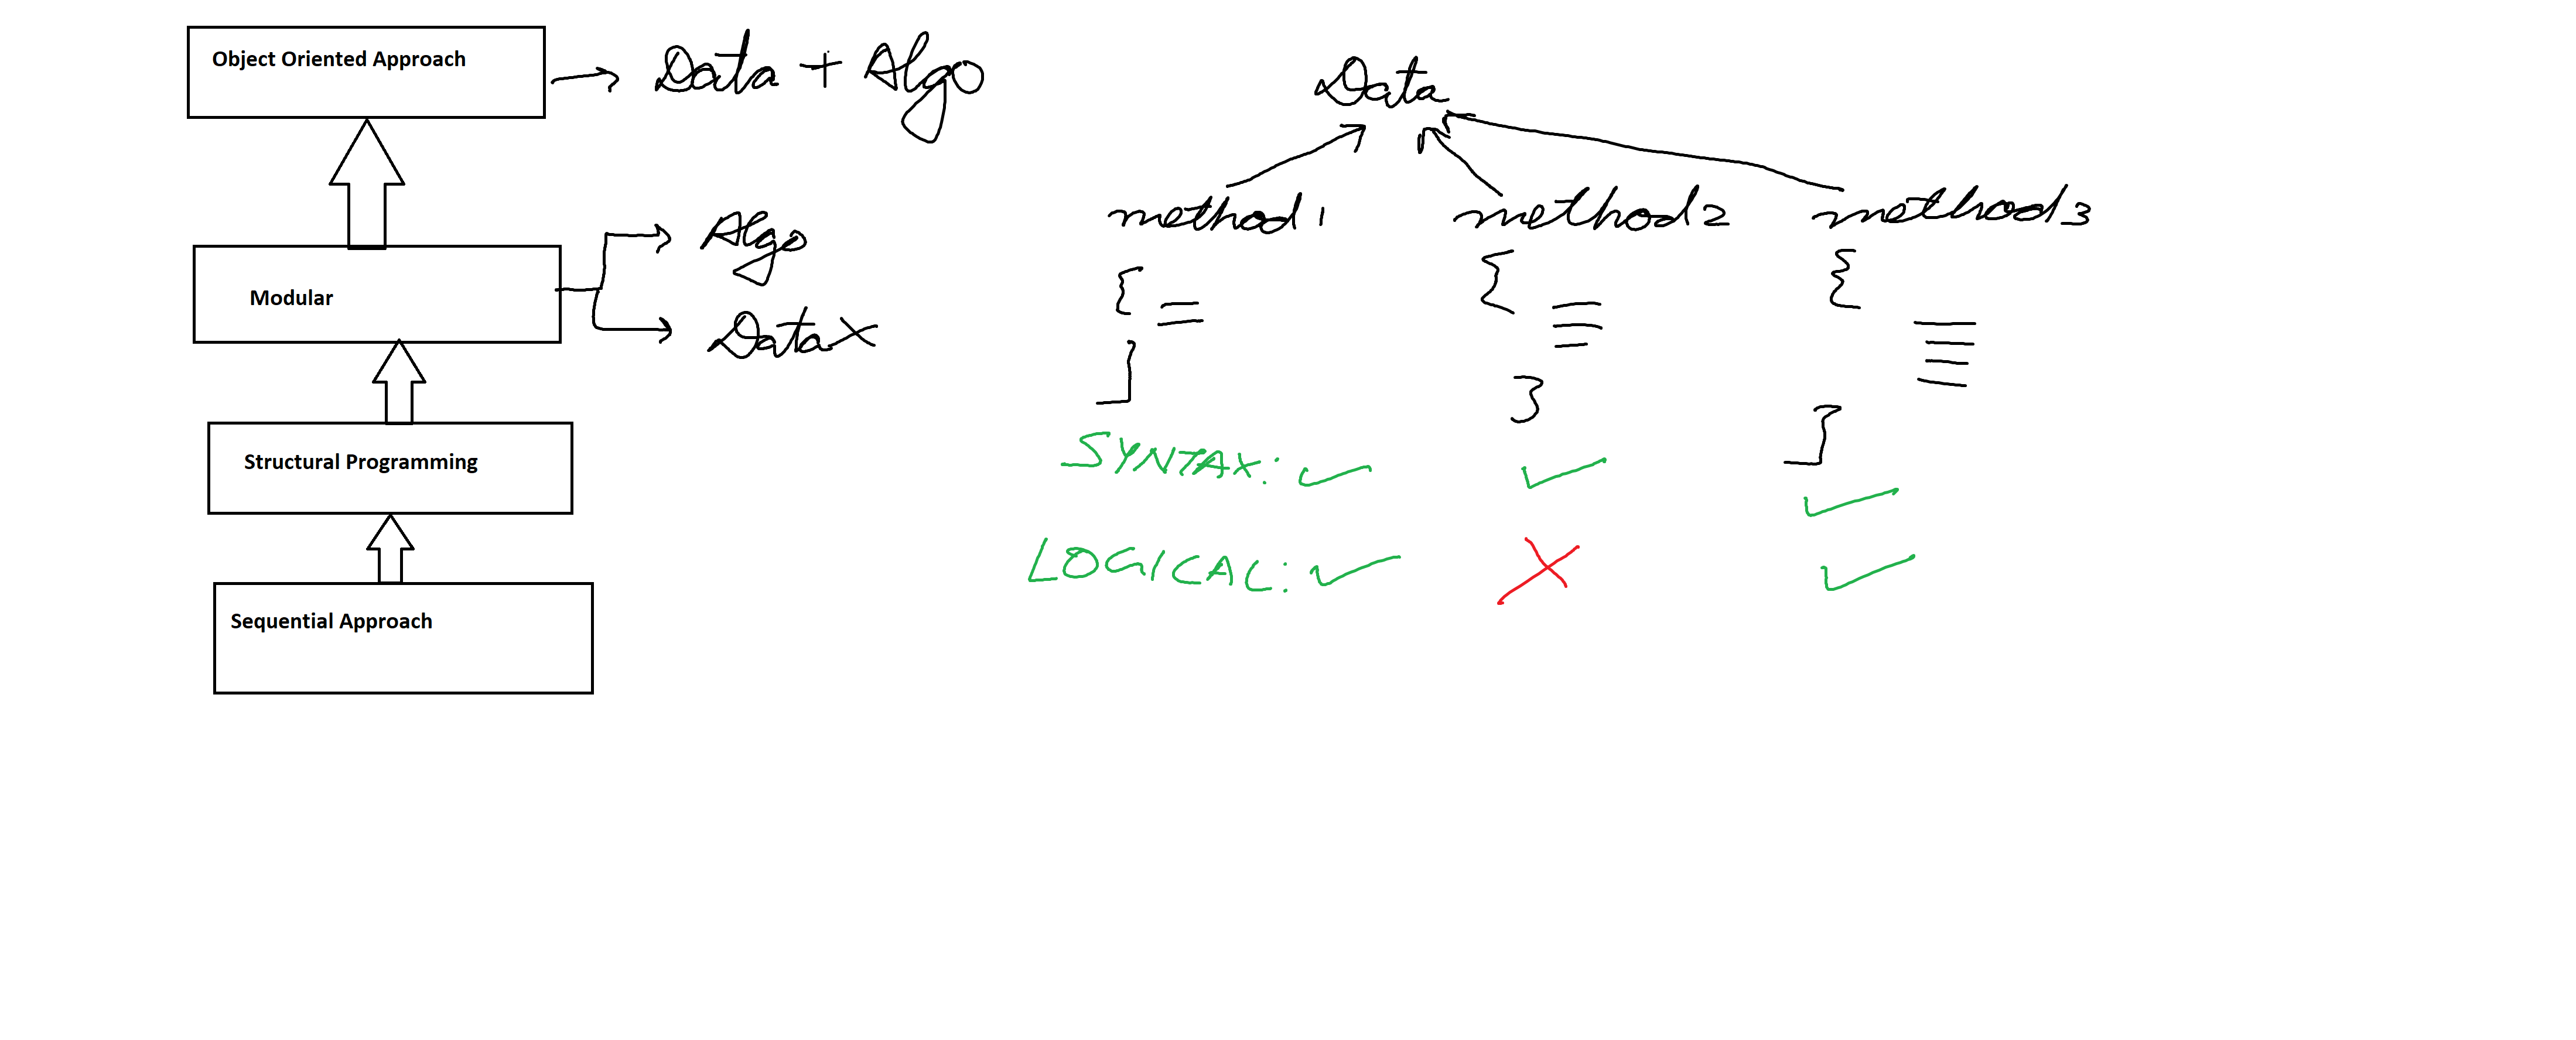 Object Oriented Approach
Data + Algo
Modular
Algo
Data X
Structural Programming
Sequential Approach
Data
method1 method2 method3
{ { {
} } }
SYNTAX: ✓ ✓ ✓
LOGICAL: ✓ X ✓